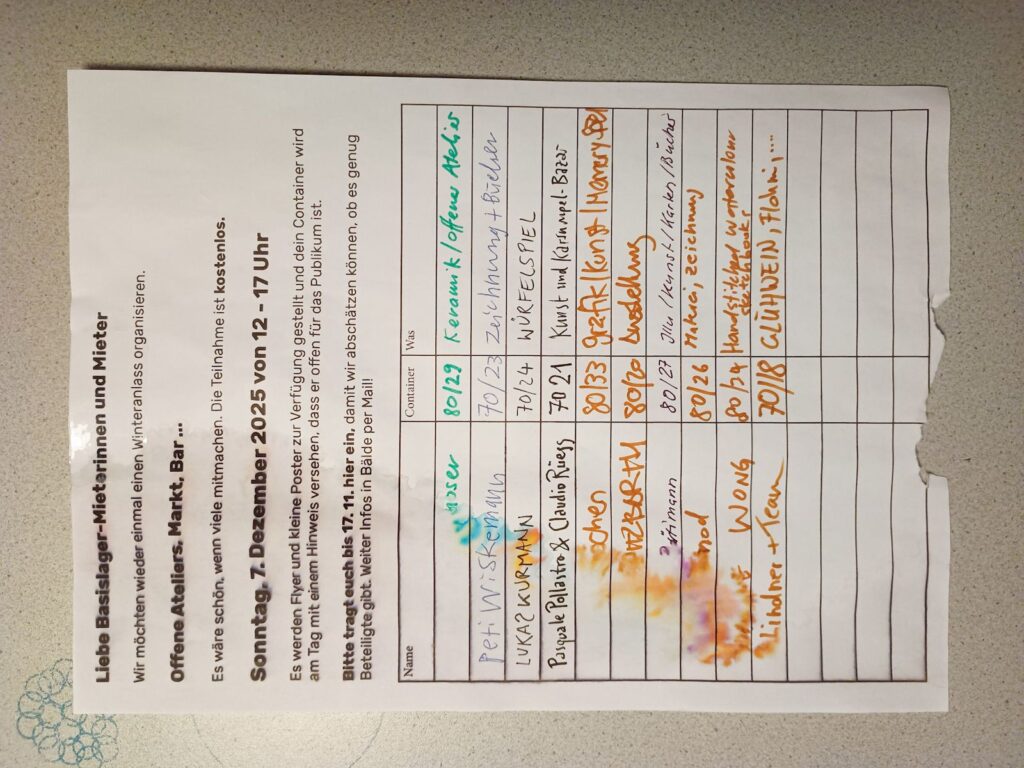 Liebe Basislager-Mieterinnen und Mieter
Wir möchten wieder einmal einen Winteranlass organisieren.
Offene Ateliers, Markt, Bar ...
Es wäre schön, wenn viele mitmachen. Die Teilnahme ist kostenlos.
Sonntag, 7. Dezember 2025 von 12 - 17 Uhr
Es werden Flyer und kleine Poster zur Verfügung gestellt und dein Container wird
am Tag mit einem Hinweis versehen, dass er offen für das Publikum ist.
Bitte tragt euch bis 17.11. hier ein, damit wir abschätzen können, ob es genug
Beteiligte gibt. Weiter Infos in Bälde per Mail!
Name Container Was
80/29 Keramik/offener Atelier
Peti Wiskemann 70/23 Zeichnung + Bücher
LUKAS KURMANN 70/24 WÜRFELSPIEL
Pasquale Pollastro & Claudio Rüegg 70 21 Kunst und Karsumpel-Bazar
80/33 grafik/Kunst/
80/20 Ausstellung
80/27 Illu/Kunst/Karten/Bücher
80/26 Malerei, Zeichnung
WONG 80/24 Handstitched Watercolour
Sketchbooks
Lindner + Team 70/18 GLÜHWEIN, Flohmi, ...